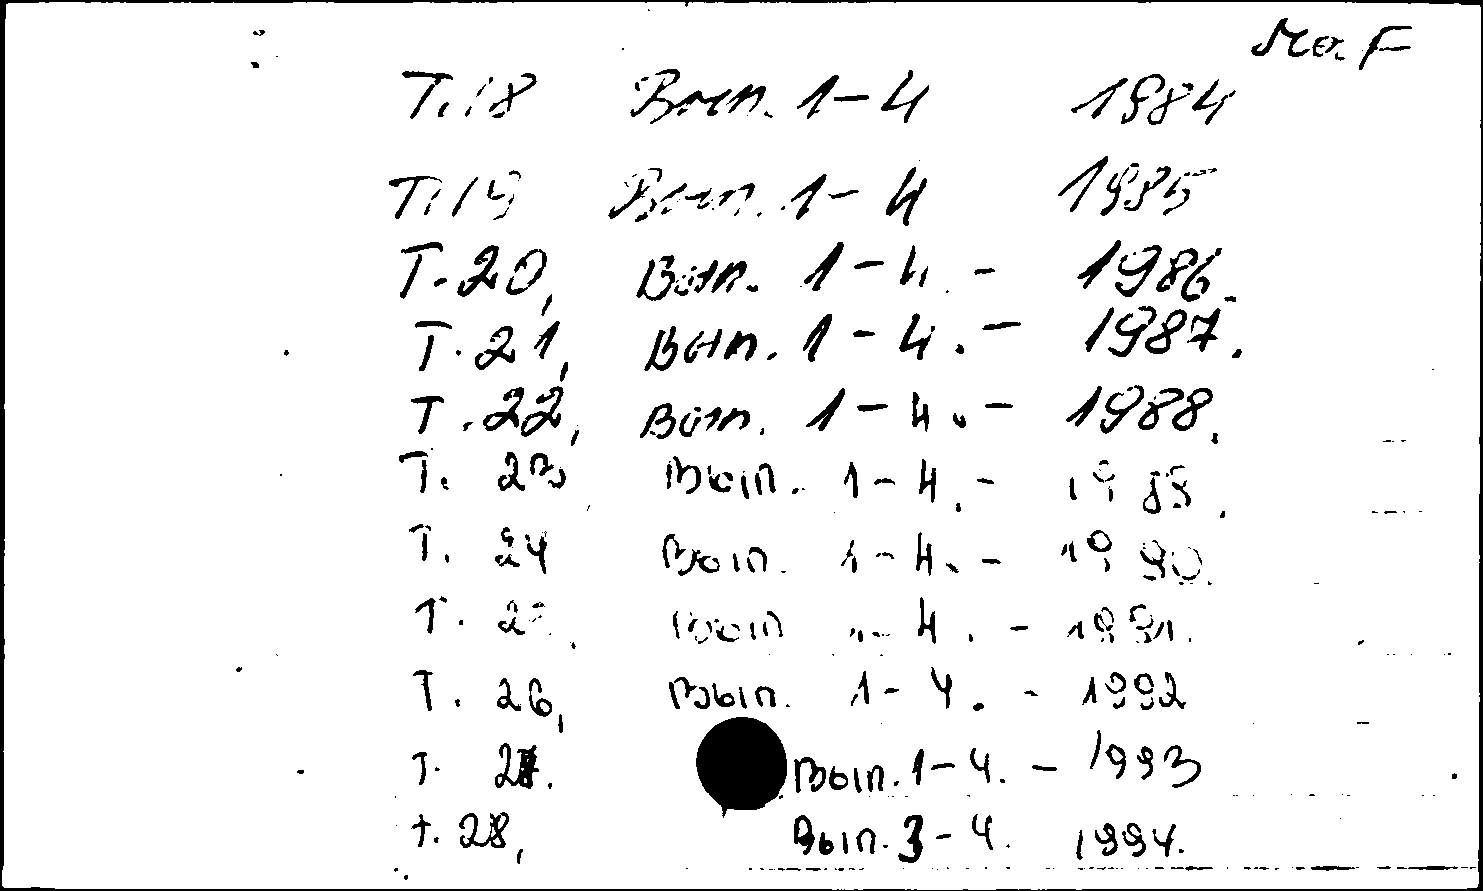 Т.18 Вып. 1-4 1984
Т.19 Вып. 1-4 1985
Т.20, Вып. 1-4. - 1986.
Т.21, Вып. 1-4. - 1987.
Т.22, Вып. 1-4. - 1988.
Т. 23 Вып. 1-4. - 1989.
Т. 24 Вып. 1-4. - 1990.
Т. 25, Вып. 1-4. - 1991.
Т. 26, Вып. 1-4. - 1992
Т. 27. Вып. 1-4. - 1993
т. 28, Вып. 3-4. 1994.